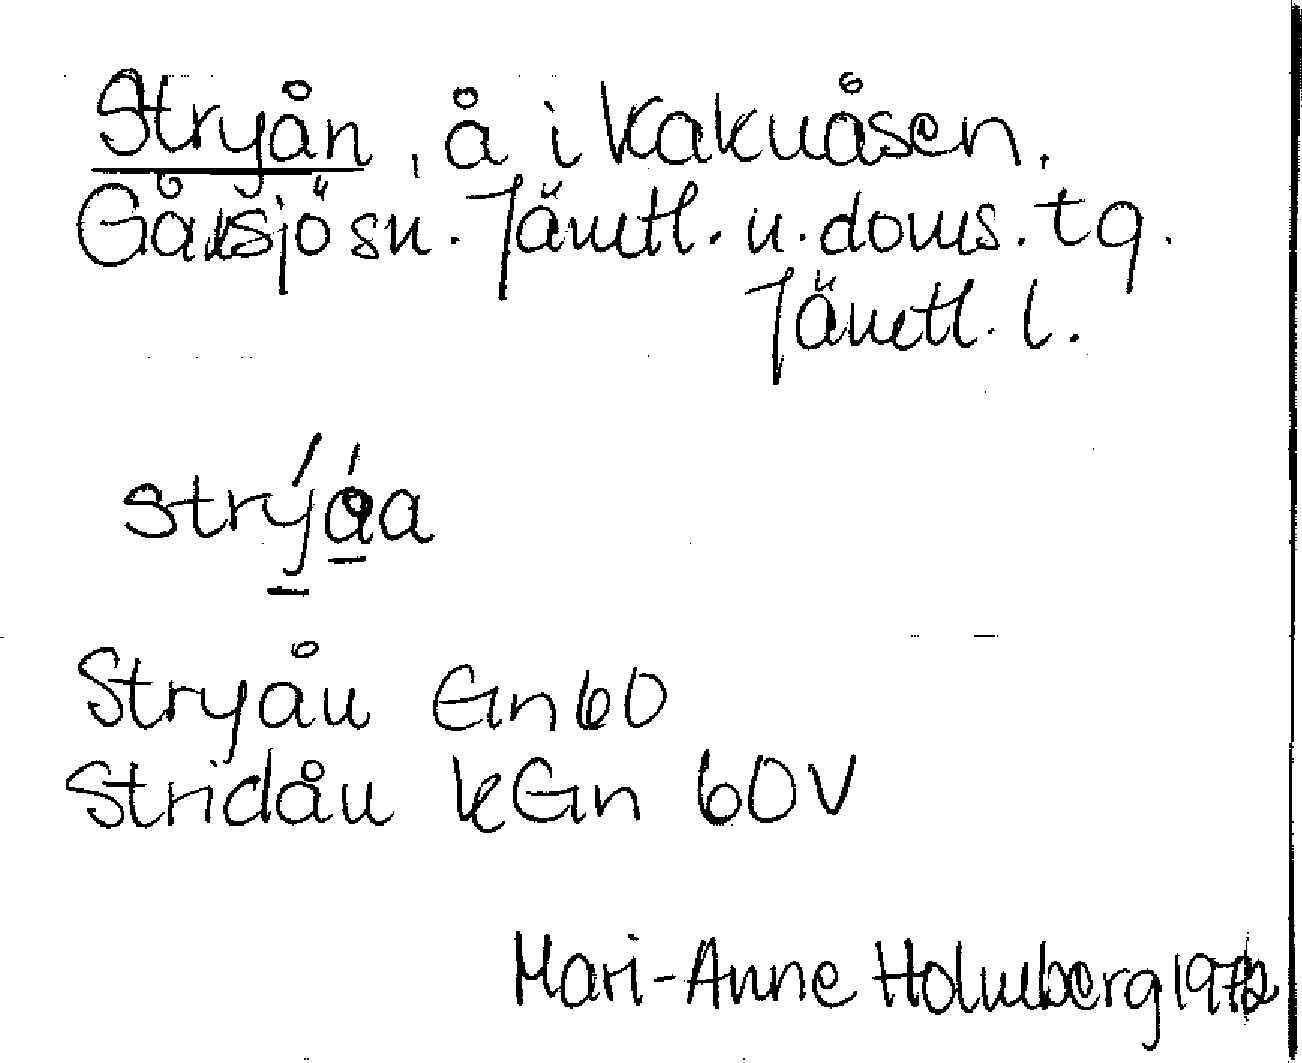 Stryån, å i Kakuåsen.
Gåxsjö sn. Jämtl. n. doms. tg.
Jämtl. l.
strý̱ǻ̱a
Stryån Gn 60
Stridån kGn 60V
Mari-Anne Holmberg 1972